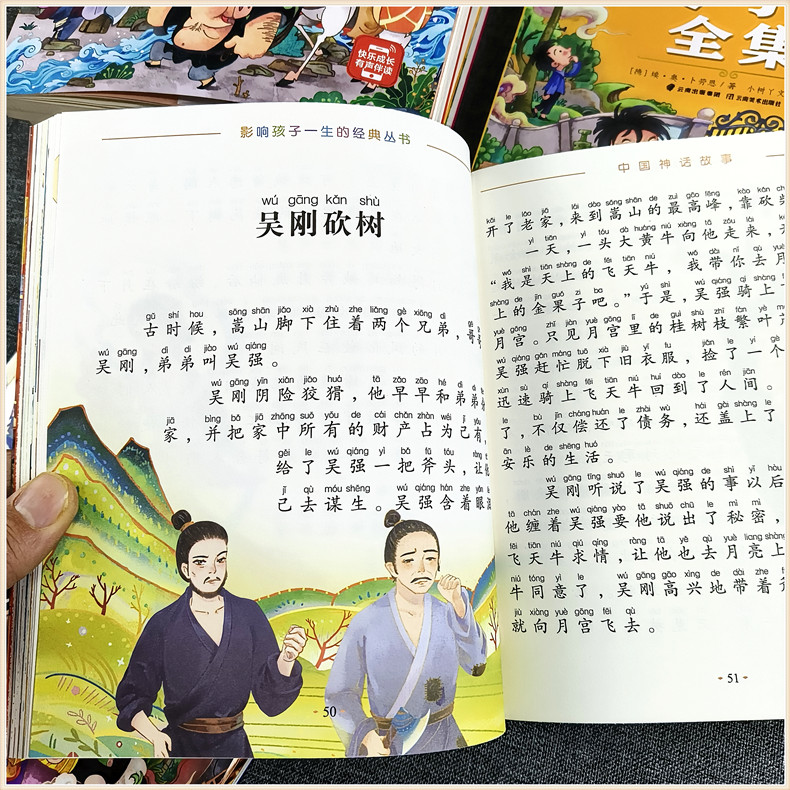 快乐成长
有声伴读
全集
小树丫文
云南出版集团 云南美术出版社
影响孩子一生的经典丛书
wú gāng kǎn shù
吴刚砍树
gǔ shí hou sōng shān jiǎo xià zhù zhe liǎng gè xiōng dì
古时候，嵩山脚下住着两个兄弟，哥
wú gāng dì di jiào wú qiáng
吴刚，弟弟叫吴强。
wú gāng yīn xiǎn jiǎo huá tā zǎo zǎo hé dì di
吴刚阴险狡猾，他早早和弟弟
jiā bìng bǎ jiā zhōng suǒ yǒu de cái chǎn zhàn wéi jǐ yǒu
家，并把家中所有的财产占为己有，
gěi le wú qiáng yì bǎ fǔ tóu ràng
给了吴强一把斧头，让
jǐ qù móu shēng wú qiáng hán zhe yǎn
己去谋生。吴强含着眼
50
中国神话故事
kāi le lǎo jiā lái dào sōng shān de zuì gāo fēng kào kǎn
开了老家，来到嵩山的最高峰，靠砍
yì tiān yì tóu dà huáng niú xiàng tā zǒu lái
一天，一头大黄牛向他走来，
wǒ shì tiān shàng de fēi tiān niú wǒ dài nǐ qù yuè
“我是天上的飞天牛，我带你去月
shàng de jīn guǒ zi ba yú shì wú qiáng qí shàng
上的金果子吧。”于是，吴强骑上
yuè gōng zhǐ jiàn yuè gōng lǐ de guì shù zhī fán yè
月宫。只见月宫里的桂树枝繁叶
wú qiáng gǎn máng tuō xià jiù yī fu jiǎn le yí gè
吴强赶忙脱下旧衣服，捡了一个
xùn sù qí shàng fēi tiān niú huí dào le rén jiān
迅速骑上飞天牛回到了人间。
le bù jǐn cháng huán le zhài wù hái gài shàng le
了，不仅偿还了债务，还盖上了
ān lè de shēng huó
安乐的生活。
wú gāng tīng shuō le wú qiáng de shì yǐ hòu
吴刚听说了吴强的事以后
tā chán zhe wú qiáng yào tā shuō chū le mì mì
他缠着吴强要他说出了秘密，
fēi tiān niú qiú qíng ràng tā yě qù yuè liang shàng
飞天牛求情，让他也去月亮上
niú tóng yì le wú gāng gāo xìng de dài zhe
牛同意了，吴刚高兴地带着
jiù xiàng yuè gōng fēi qù
就向月宫飞去。
51